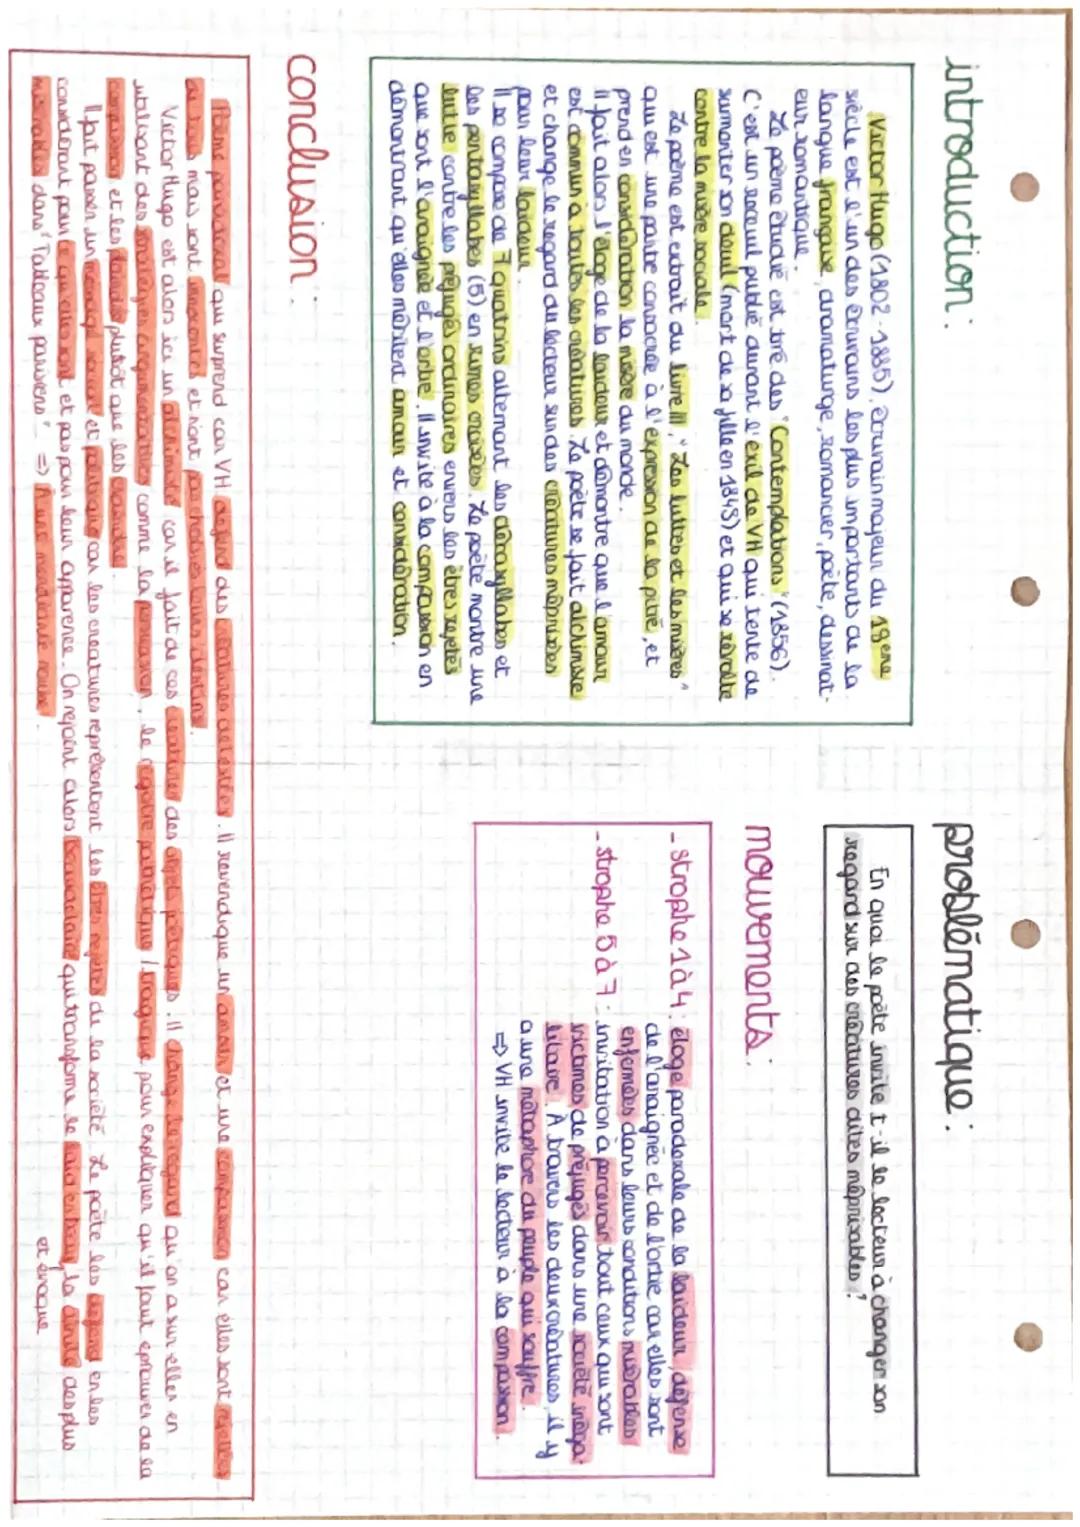 introduction :
Victor Hugo (1802-1885), écrivain majeur du 19eme
siècle est l'un des écrivains les plus importants de la
langue française, dramaturge, romancier, poète, dessinat-
eur romantique.
Le poème étudié est tiré des "Contemplations" (1856).
C'est un recueil publié durant l'éxil de VH qui tente de
surmonter son deuil (mort de sa fille en 1843) et qui se révolte
contre la misère sociale.
Le poème est extrait du livre III, "Les luttes et les misères"
qui est une partie consacrée à l'expression de la pitié, et
prend en considération la misère du monde.
Il fait alors l'éloge de la laideur et démontre que l'amour
est commun à toutes les créatures. Le poète se fait alchimiste
et change le regard du lecteur sur des créatures méprisées
pour leur laideur.
Il se compose de 7 quatrains alternant les décasyllabes et
les pentasyllabes (5) en rimes croisées. Le poète montre une
lutte contre les préjugés ordinaires envers les êtres rejetés
que sont l'araignée et l'ortie. Il invite à la compassion en
démontrant qu'elles méritent amour et considération.
problématique :
En quoi le poète invite t-il le lecteur à changer son
regard sur des créatures dites méprisables ?
mouvements :
- strophe 1 à 4 : éloge paradoxale de la laideur, défense
de l'araignée et de l'ortie car elles sont
enfermées dans leurs conditions misérables
- strophe 5 à 7 : invitation à percevoir tout ceux qui sont
victimes de préjugés dans une société inéga-
litaire. À travers les deux créatures, il y
a une métaphore du peuple qui souffre.
=> VH invite le lecteur à la compassion.
conclusion :
Poème paradoxal qui surprend car VH défend des créatures détestées. Il revendique un amour et une compassion car elles sont rejetées
de tous mais sont innocentes et n'ont pas choisies leurs destins.
Victor Hugo est alors ici un alchimiste car il fait de ces créatures des objets poétiques. Il change le regard qu'on a sur elles en
utilisant des stratégies argumentatives comme la persuasion, le registre pathétique / tragique pour expliquer qu'il faut eprouver de la
compassion et les plaindre plutôt que les
Il fait passer un message social et politique car les creatures représentent les êtres rejetés de la société. Le poète les défend en les
considérant pour ce qu'elles sont et pas pour leur apparence. On rejoint alors Beaudelaire qui transforme le laid en beau, la des plus
misérables dans "Tableaux parisiens" => A une mendiante rousse.
et évoque